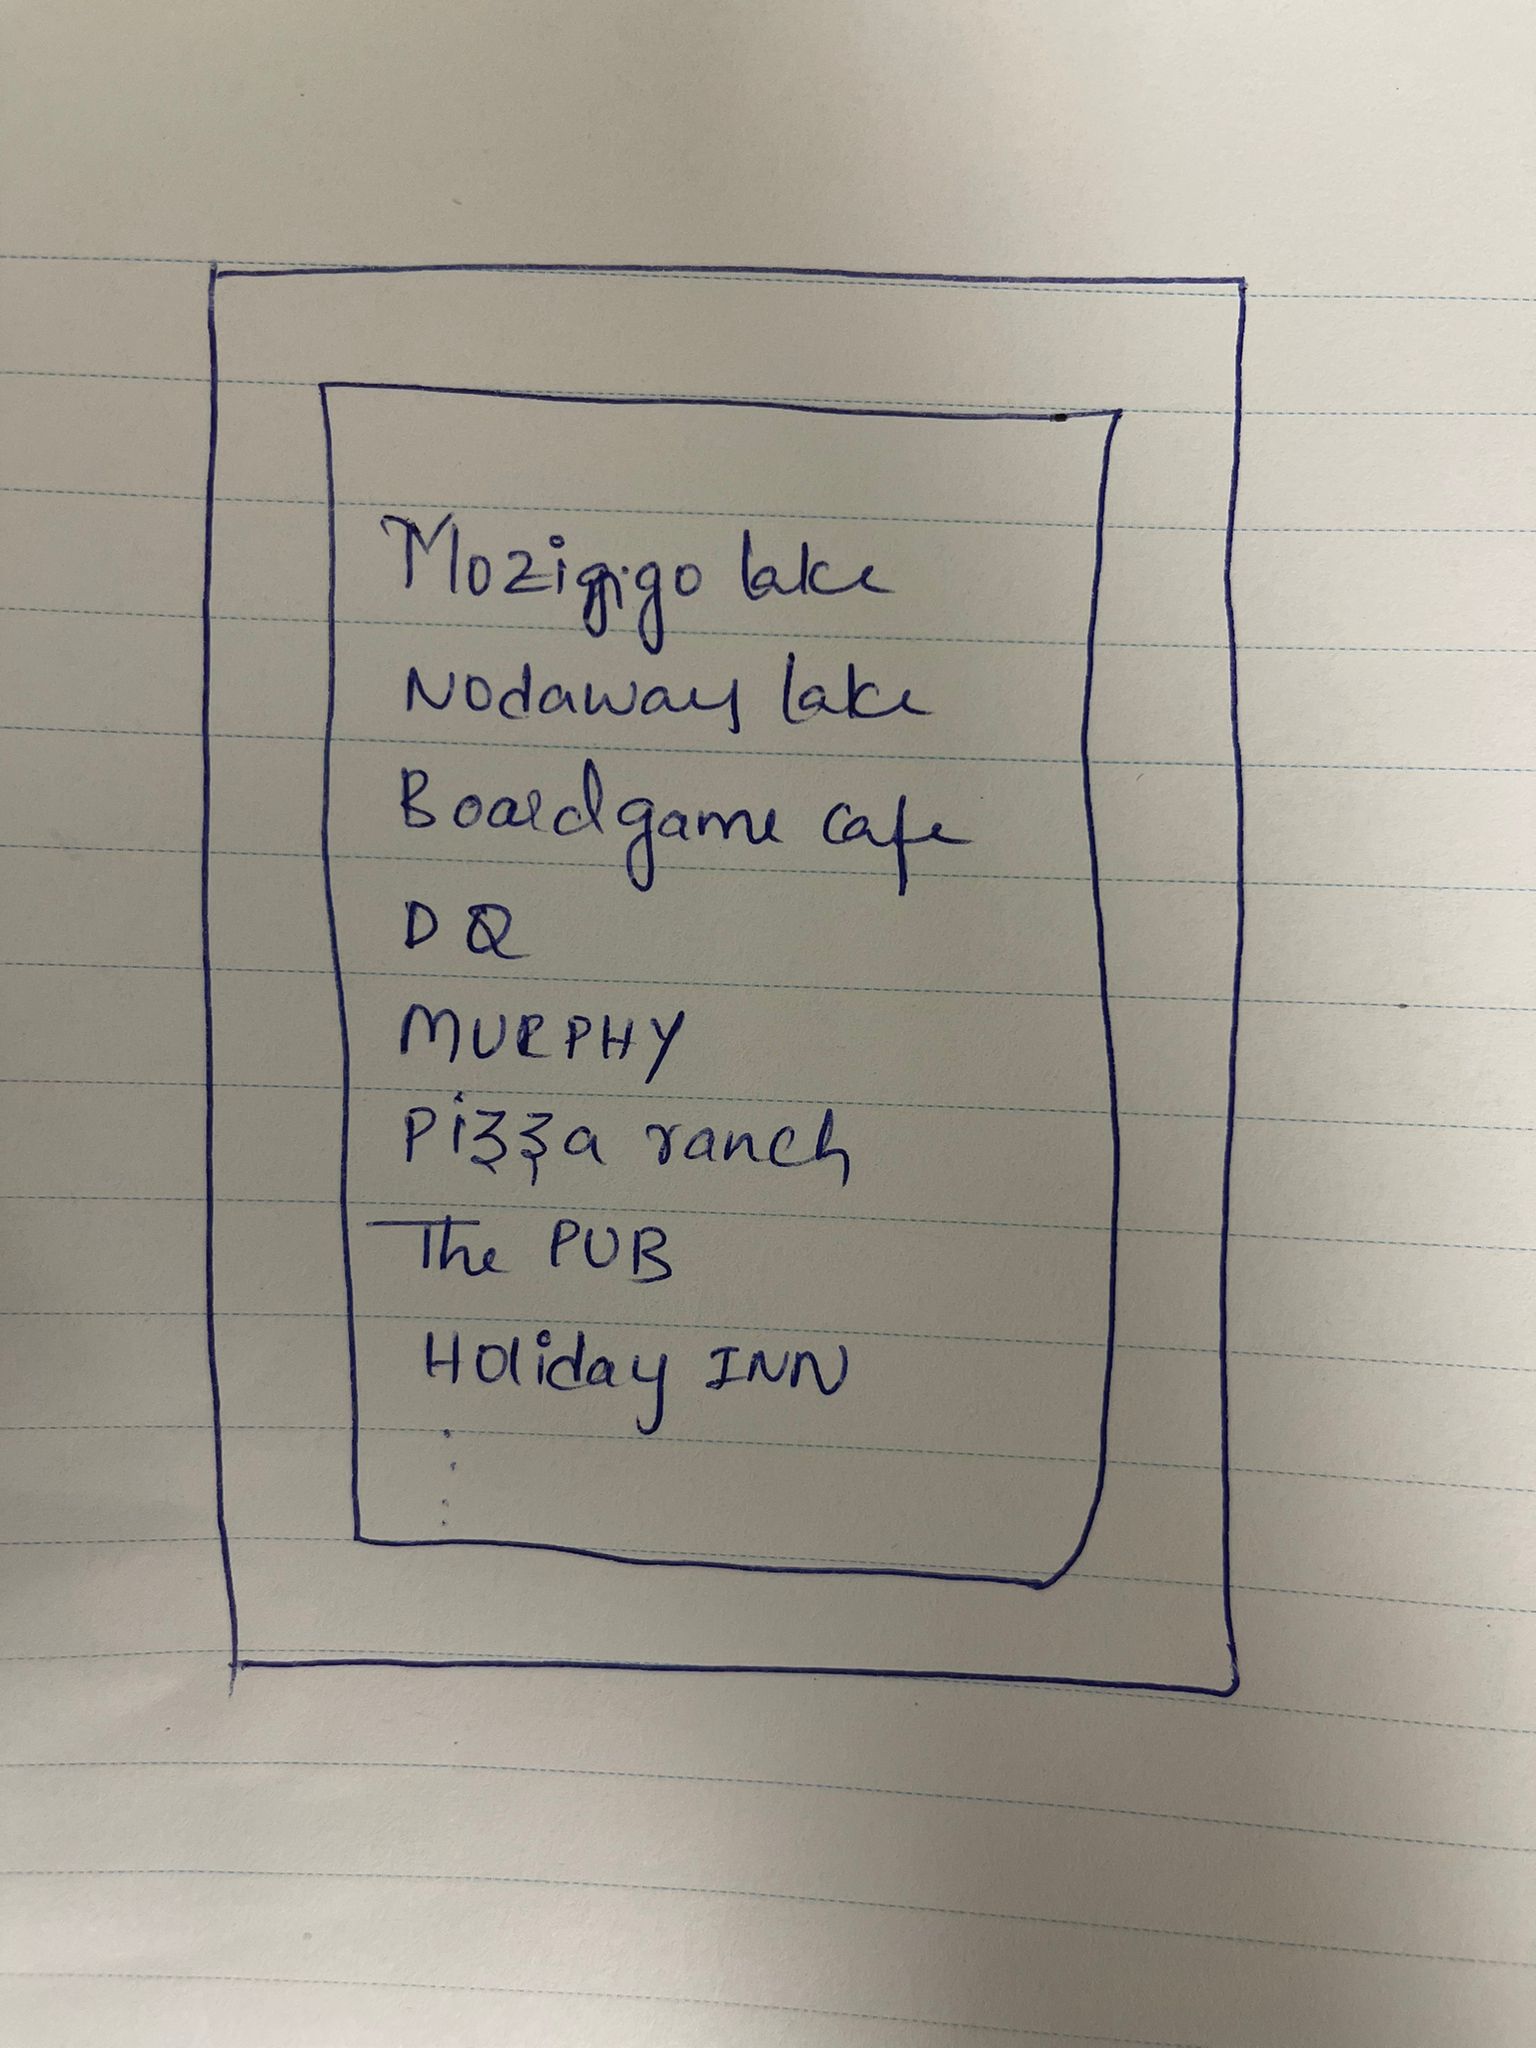 Mozigigo lake
Nodaway lake
Boardgame cafe
DQ
MURPHY
Pizza ranch
The PUB
Holiday INN